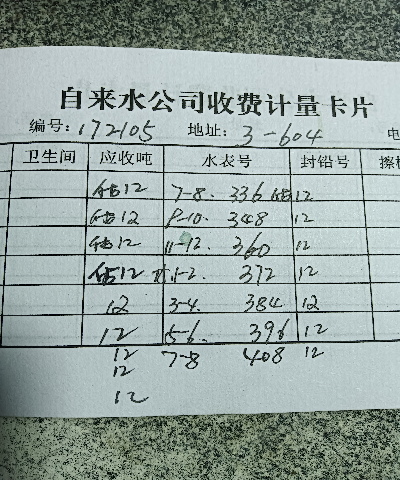 自来水公司收费计量卡片
编号:172105 地址:3-604 电
卫生间 应收吨 水表号 封铅号 擦
估12 7-8. 336 估12
估12 9-10. 348 12
估12 11-12. 360 12
估12 1-2. 372 12
12 3-4. 384 12
12 5-6. 396 12
12 7-8 408 12
12
12